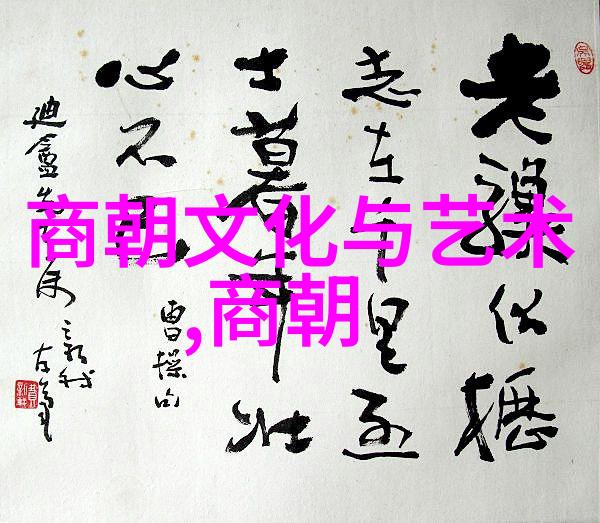 商朝文化与艺术
,商朝
老驥伏櫪
志在千里烈
士暮年壮
心不已
曹操句